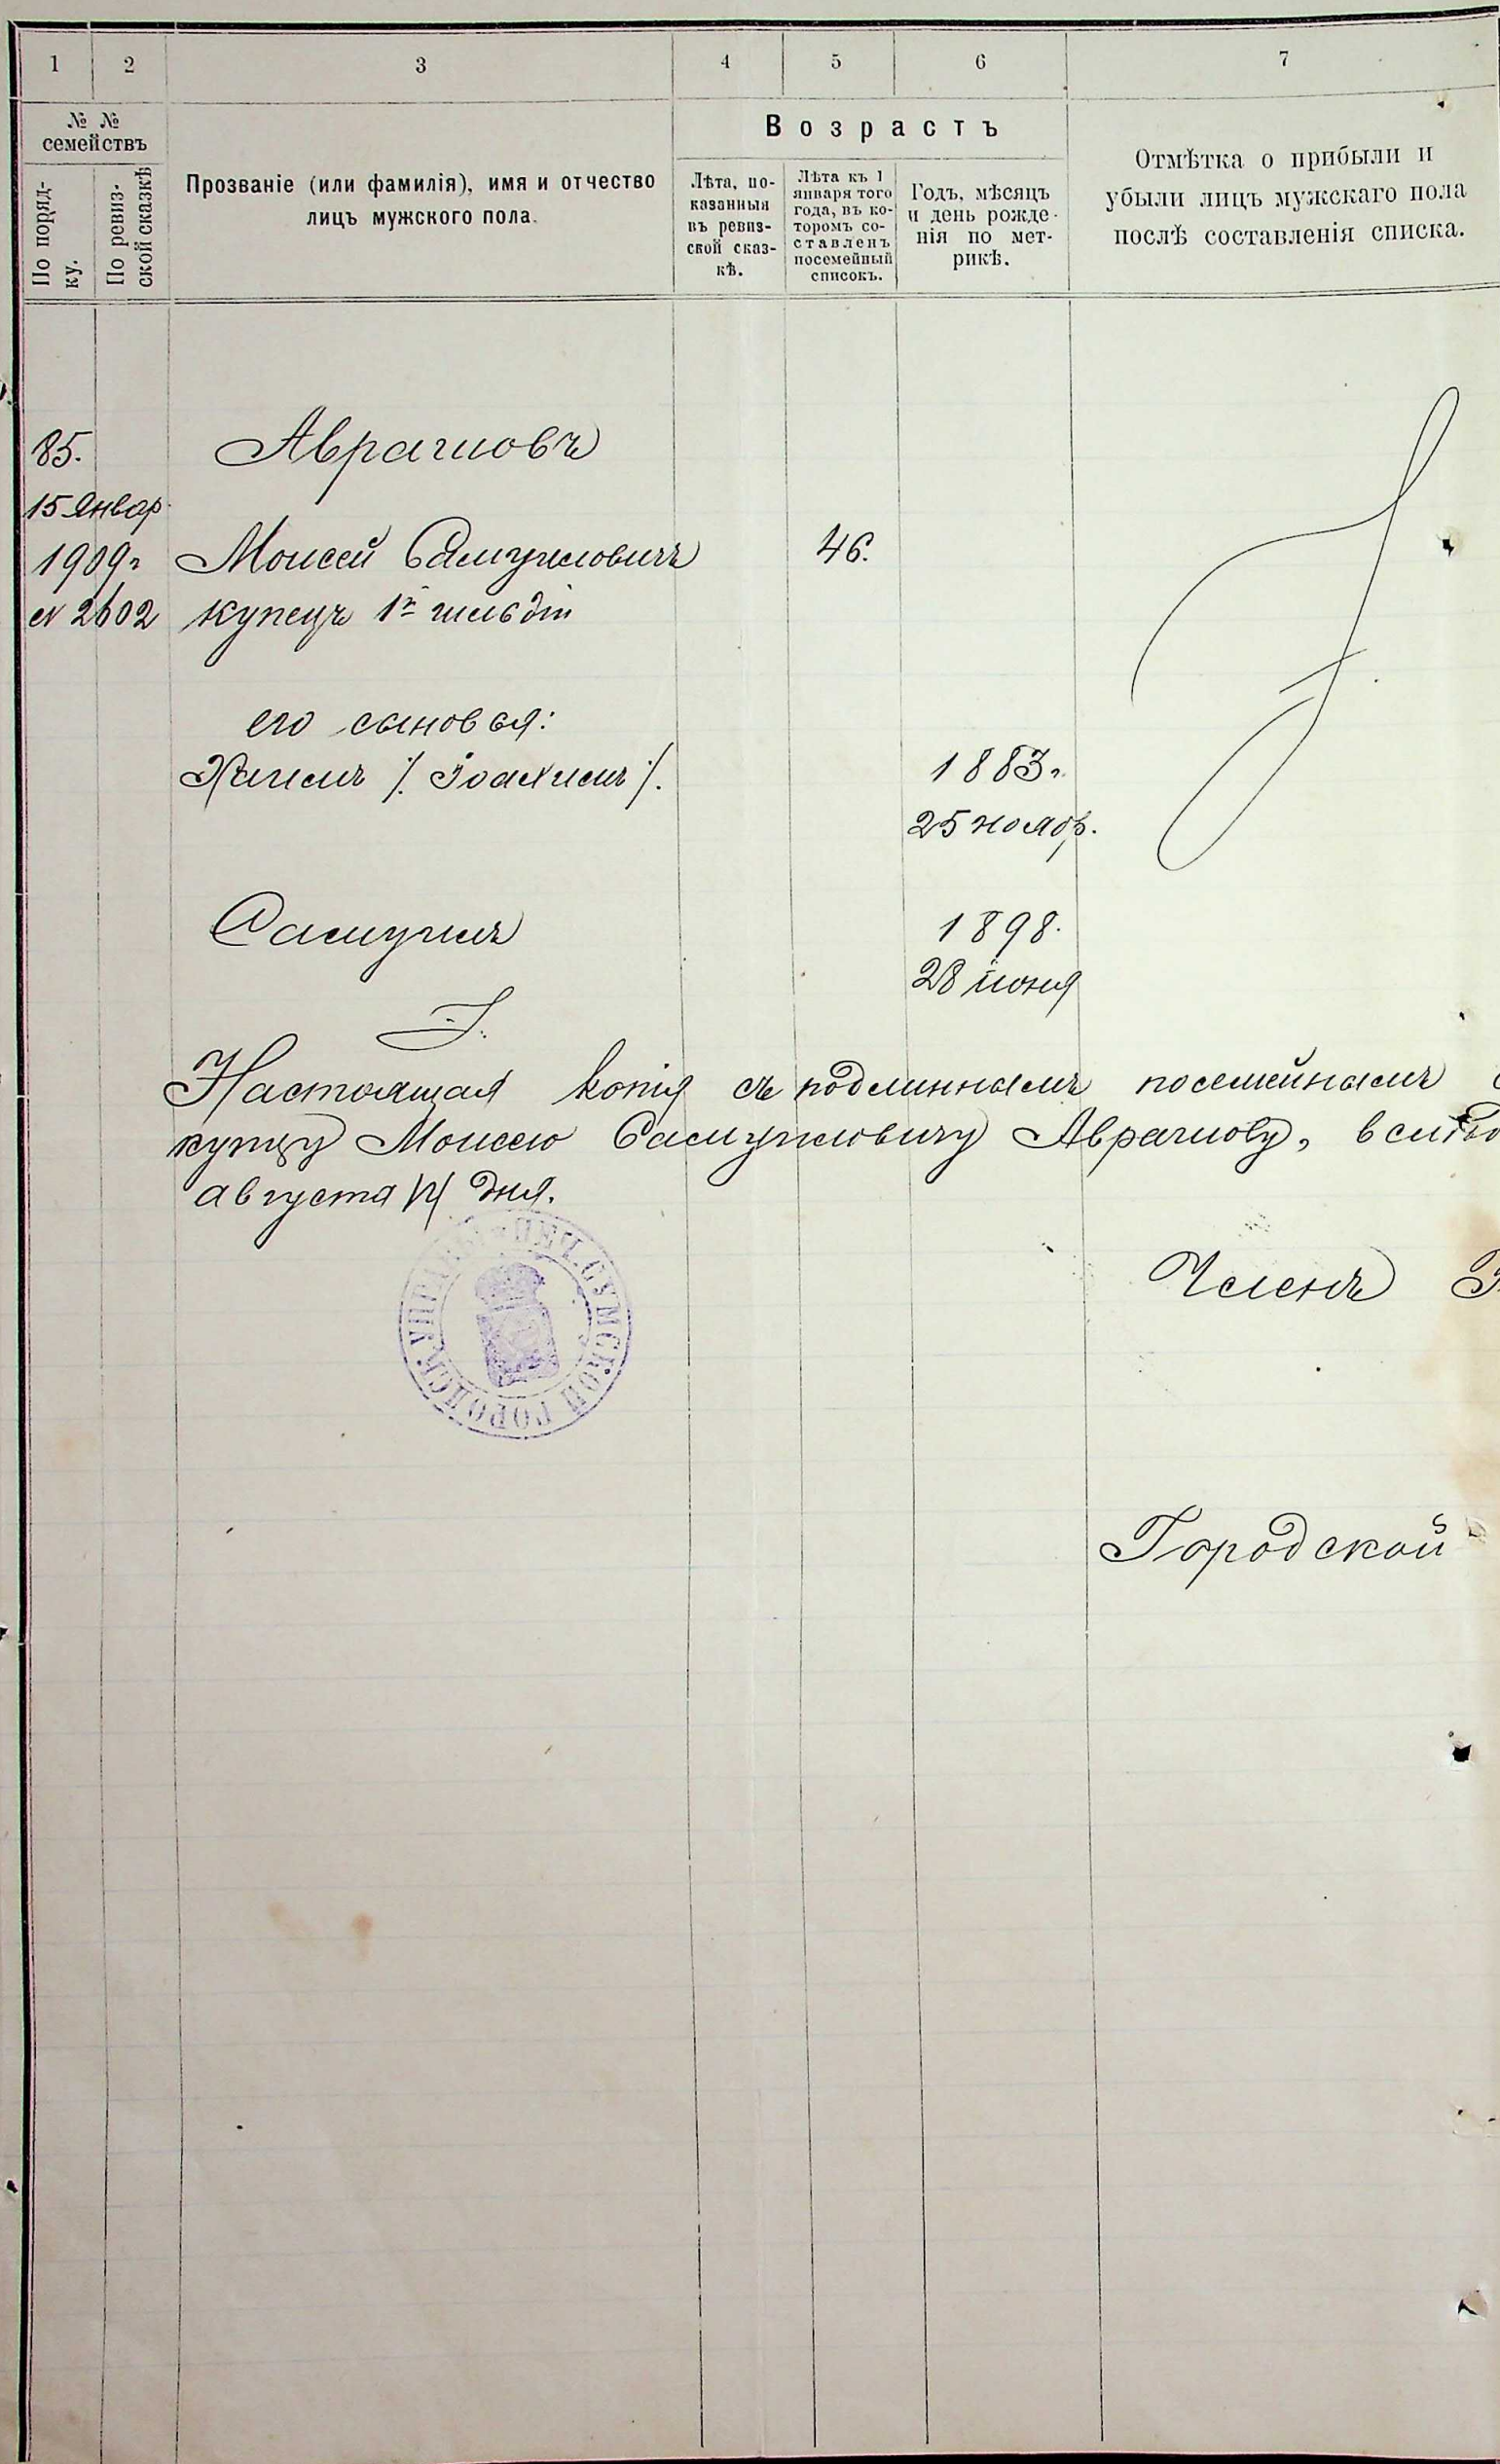 1 2 3 4 5 6 7
№ №
семействъ
По поряд-
ку.
По ревиз-
ской сказкѣ
Прозваніе (или фамилія), имя и отчество
лицъ мужского пола.
Возрастъ
Лѣта, по-
казанныя
въ ревиз-
ской сказ-
кѣ.
Лѣта къ 1
января того
года, въ ко-
торомъ со-
ставленъ
посемейный
списокъ.
Годъ, мѣсяцъ
и день рожде-
нія по мет-
рикѣ.
Отмѣтка о прибыли и
убыли лицъ мужскаго пола
послѣ составленія списка.
85. Аврамовъ
15 Январ.
1909 г. Моисей Самуиловичъ 46.
№ 2602 купецъ 1й гильдіи
его сыновья:
Хаимъ /. Іоахимъ /. 1883 г.
25 ноябр.
Самуилъ 1898.
28 іюня
Настоящая копія съ подлиннымъ посемейнымъ
купцу Моисею Самуиловичу Аврамову,
августа 14 дня.
ПЕЧ. СУМСКОЙ ГОРОДСК. УПРАВЫ
Членъ
Городской